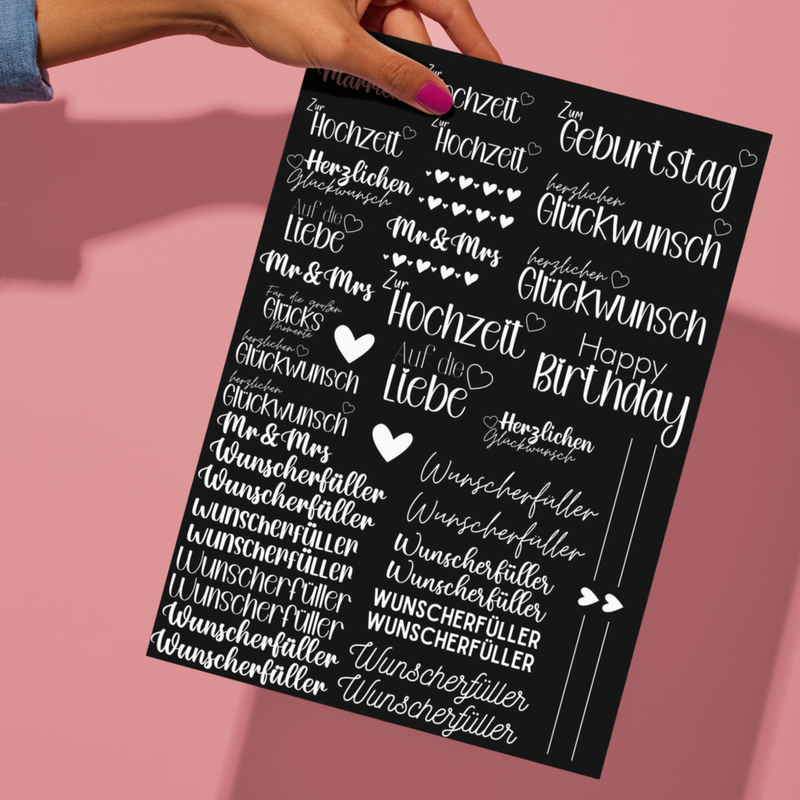 Married
Zur
Hochzeit
Zur
Hochzeit
Herzlichen
Glückwunsch
Auf die
Liebe
Mr & Mrs
Für die großen
Glücks
Momente
herzlichen
Glückwunsch
herzlichen
Glückwunsch
Mr & Mrs
Wunscherfüller
Wunscherfüller
wunscherfüller
wunscherfüller
Wunscherfüller
Wunscherfüller
Wunscherfüller
Wunscherfüller
Zur
Hochzeit
Mr & Mrs
Zur
Hochzeit
Auf die
Liebe
Herzlichen
Glückwunsch
Wunscherfüller
Wunscherfüller
Wunscherfüller
Wunscherfüller
WUNSCHERFÜLLER
WUNSCHERFÜLLER
Wunscherfüller
Wunscherfüller
Zum
Geburtstag
herzlichen
Glückwunsch
herzlichen
Glückwunsch
Happy
Birthday